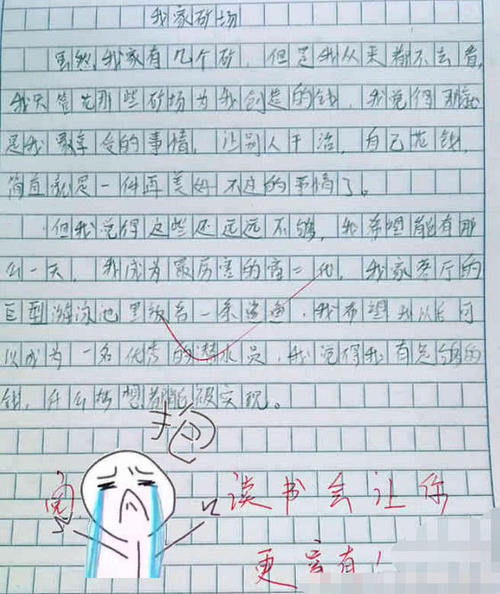 我家矿场
虽然,我家有几个矿,但是我从来都不去看,
我只管花那些矿场为我创造的钱,我觉得那就
是我最享受的事情,让别人干活,自己花钱,
简直就是一件再美妙不过的事情了。
但我觉得这些还远远不够,我希望能有那
么一天,我成为最厉害的富二代,我家客厅的
巨型游泳池里放着一条鲨鱼,我希望我以后可
以成为一名优秀的潜水员,我觉得我有足够的
钱,什么梦想都能被实现。
抱
阅
读书会让你
更富有!